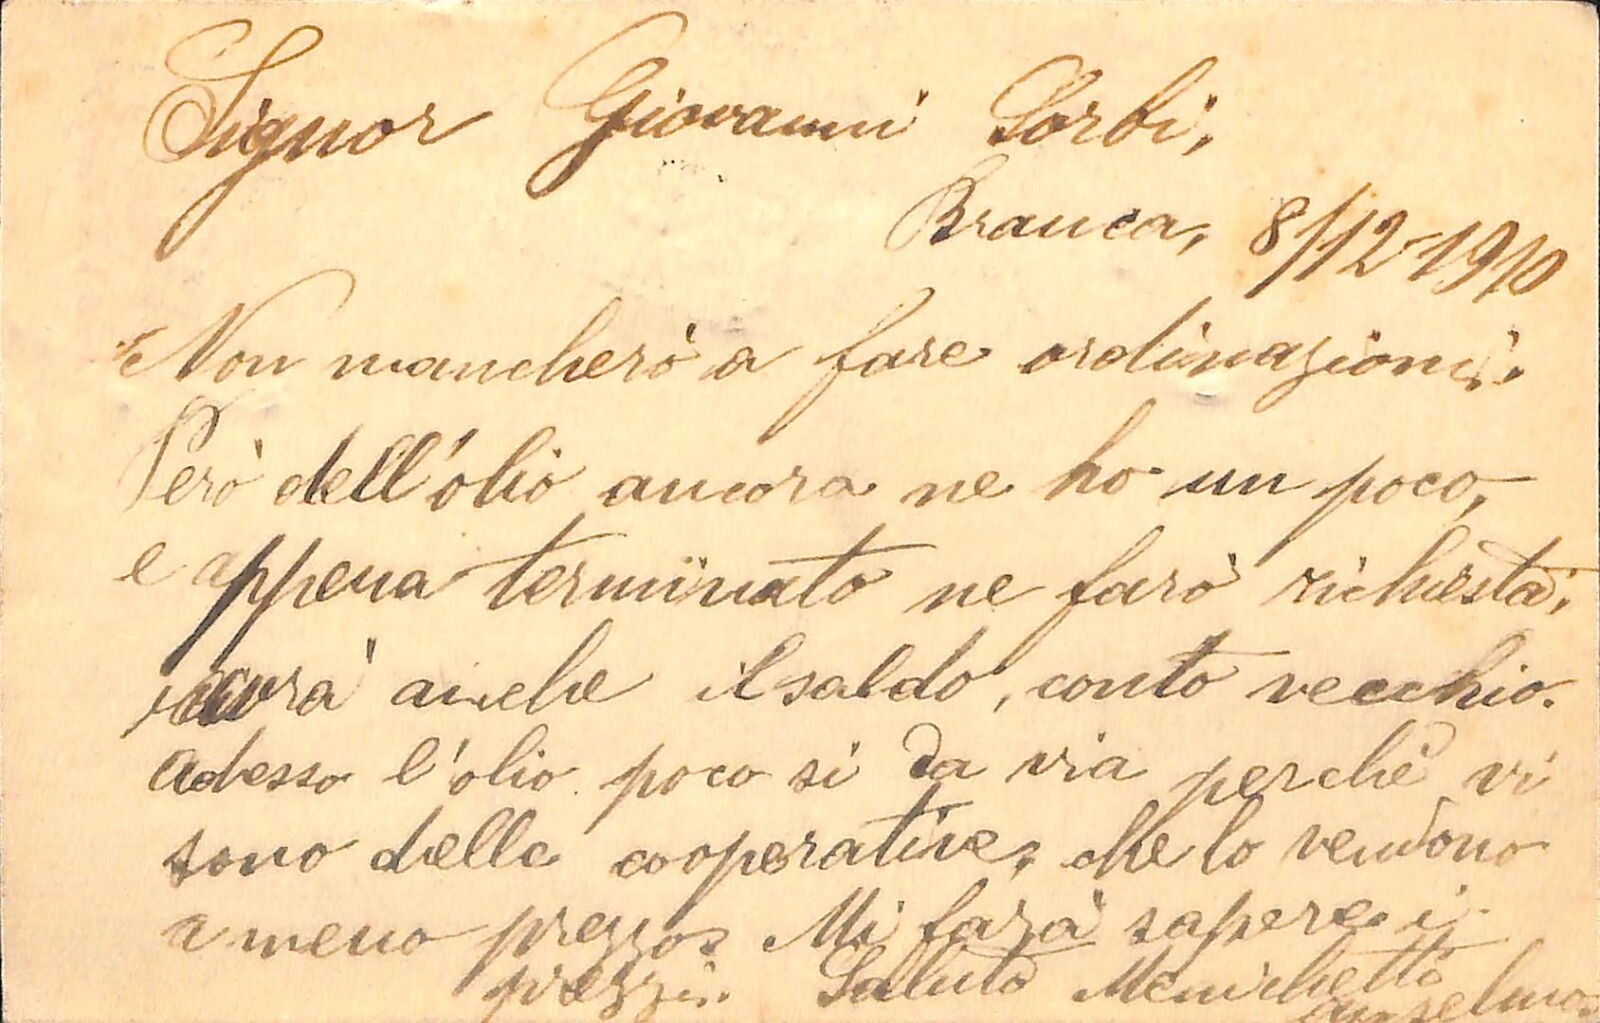 Signor Giovanni Sorbi,
Branca, 8/12-1910
Non mancherò a fare ordinazioni.
Però dell'olio ancora ne ho un poco,
e appena terminato ne farò richiesta,
avrà anche il saldo, conto vecchio.
Adesso l'olio poco si da via perchè vi
sono delle cooperative, che lo vendono
a meno prezzo. Mi farà sapere i
prezzi. Saluto Menichetti
Anselmo